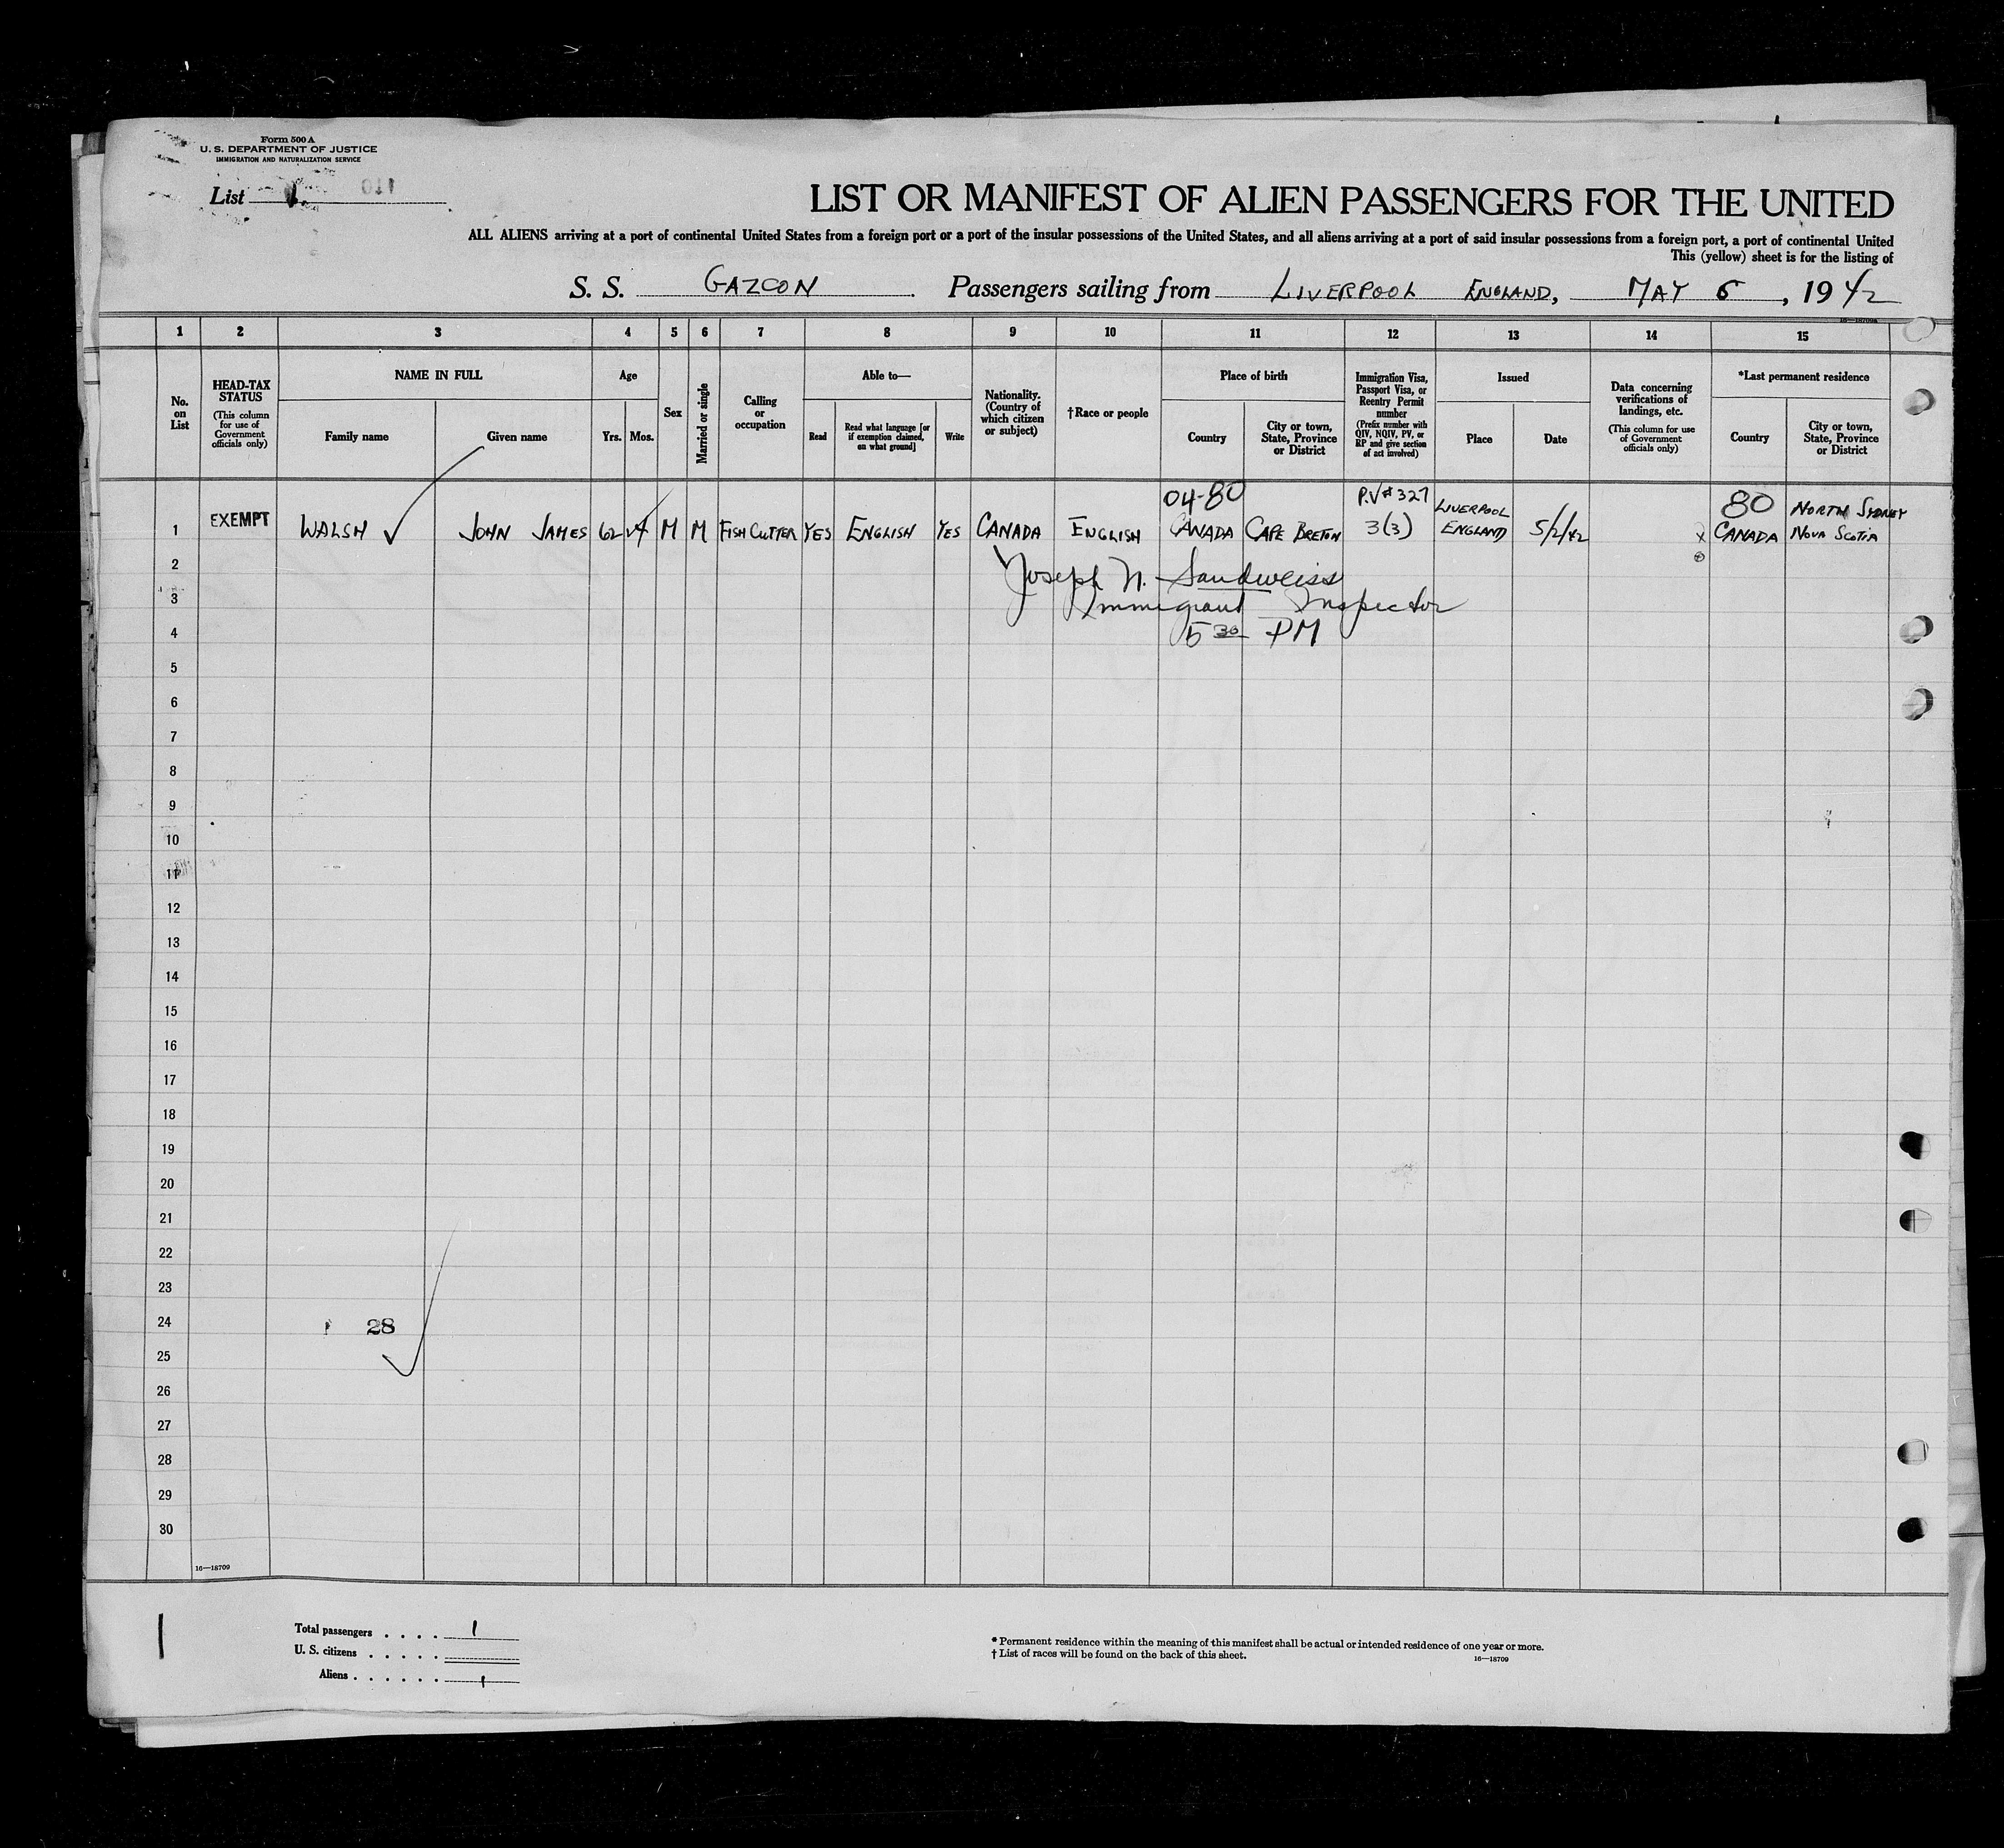 Form 500 A
U. S. DEPARTMENT OF JUSTICE
IMMIGRATION AND NATURALIZATION SERVICE
List 1.
110
LIST OR MANIFEST OF ALIEN PASSENGERS FOR THE UNITED
ALL ALIENS arriving at a port of continental United States from a foreign port or a port of the insular possessions of the United States, and all aliens arriving at a port of said insular possessions from a foreign port, a port of continental United
This (yellow) sheet is for the listing of
S. S. GAZCON Passengers sailing from LIVERPOOL ENGLAND, MAY 6, 1942
1 2 3 4 5 6 7 8 9 10 11 12 13 14 15
No. on List
HEAD-TAX STATUS (This column for use of Government officials only)
NAME IN FULL
Family name
Given name
Age
Yrs. Mos.
Sex
Married or single
Calling or occupation
Able to—
Read
Read what language [or if exemption claimed, on what ground]
Write
Nationality. (Country of which citizen or subject)
†Race or people
Place of birth
Country
City or town, State, Province or District
Immigration Visa, Passport Visa, or Reentry Permit number (Prefix number with QIV, NQIV, PV, or RP and give section of act involved)
Issued
Place
Date
Data concerning verifications of landings, etc. (This column for use of Government officials only)
*Last permanent residence
Country
City or town, State, Province or District
04-80 P.V#327 LIVERPOOL 80 NORTH SYDNEY
1 EXEMPT WALSH JOHN JAMES 62 M M FISH CUTTER YES ENGLISH YES CANADA ENGLISH CANADA CAPE BRETON 3(3) ENGLAND 5/2/42 X CANADA NOVA SCOTIA
2 Joseph N. Sandweiss
3 Immigrant Inspector
4 5 30 PM
5
6
7
8
9
10
11
12
13
14
15
16
17
18
19
20
21
22
23
24 28
25
26
27
28
29
30
16—18709
Total passengers . . . . 1
U. S. citizens . . . . .
Aliens . . . . . . 1
* Permanent residence within the meaning of this manifest shall be actual or intended residence of one year or more.
† List of races will be found on the back of this sheet.
16—18709